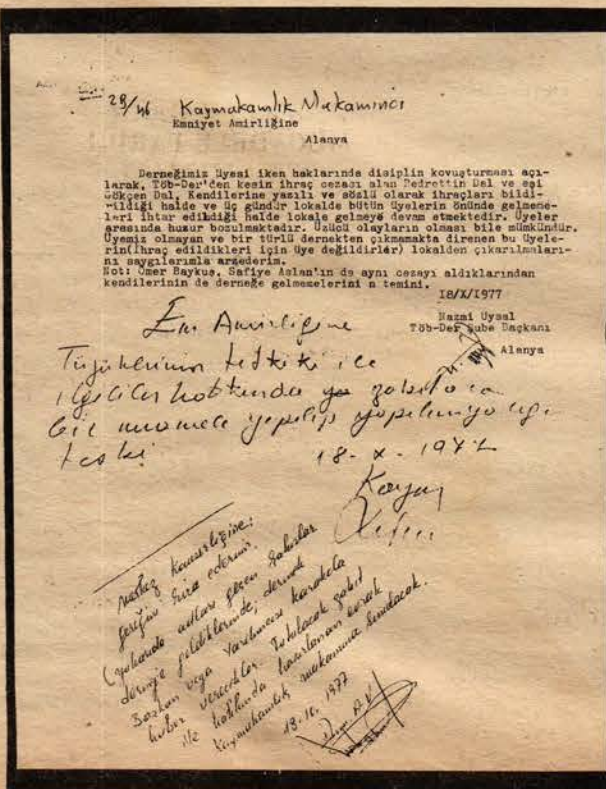 29/46 Kaymakamlık Makamına
Emniyet Amirliğine
Alanya
Derneğimiz üyesi iken haklarında disiplin kovuşturması açı-
larak, Töb-Der'den kesin ihraç cezası alan Bedrettin Dal ve eşi
Gökçen Dal, Kendilerine yazılı ve sözlü olarak ihraçları bildi-
rildiği halde ve üç gündür lokalde bütün üyelerin önünde gelmeme-
leri ihtar edildiği halde lokale gelmeye devam etmektedir. Üyeler
arasında huzur bozulmaktadır. Üzücü olayların olması bile mümkündür.
Üyemiz olmayan ve bir türlü dernekten çıkmamakta direnen bu üyele-
rin(İhraç edildikleri için üye değildirler) lokalden çıkarılmaları-
nı saygılarımla arzederim.
Not: Ömer Baykuş, Safiye Aslan'ın da aynı cezayı aldıklarından
kendilerinin de derneğe gelmemelerini n temini.
18/X/1977
Nazmi Uysal
Töb-Der Şube Başkanı
Alanya
Em Amirliğine
Tüzüklerinin tetkiki ile
ilgililer hakkında zabıtaca
bir muamele yapılıp yapılmıyacağı
18-X-1977
Kaym
Merkez Komiserliğine:
gereğini rica ederim.
(yukarıda adları geçen şahıslar
derneğe geldiklerinde, dernek
Başkan veya Yardımcısı karakola
haber verecekler. Tutulacak zabıt
ile hakkında hazırlanan evrak
kaymakamlık makamına sunulacak.
18.10.1977